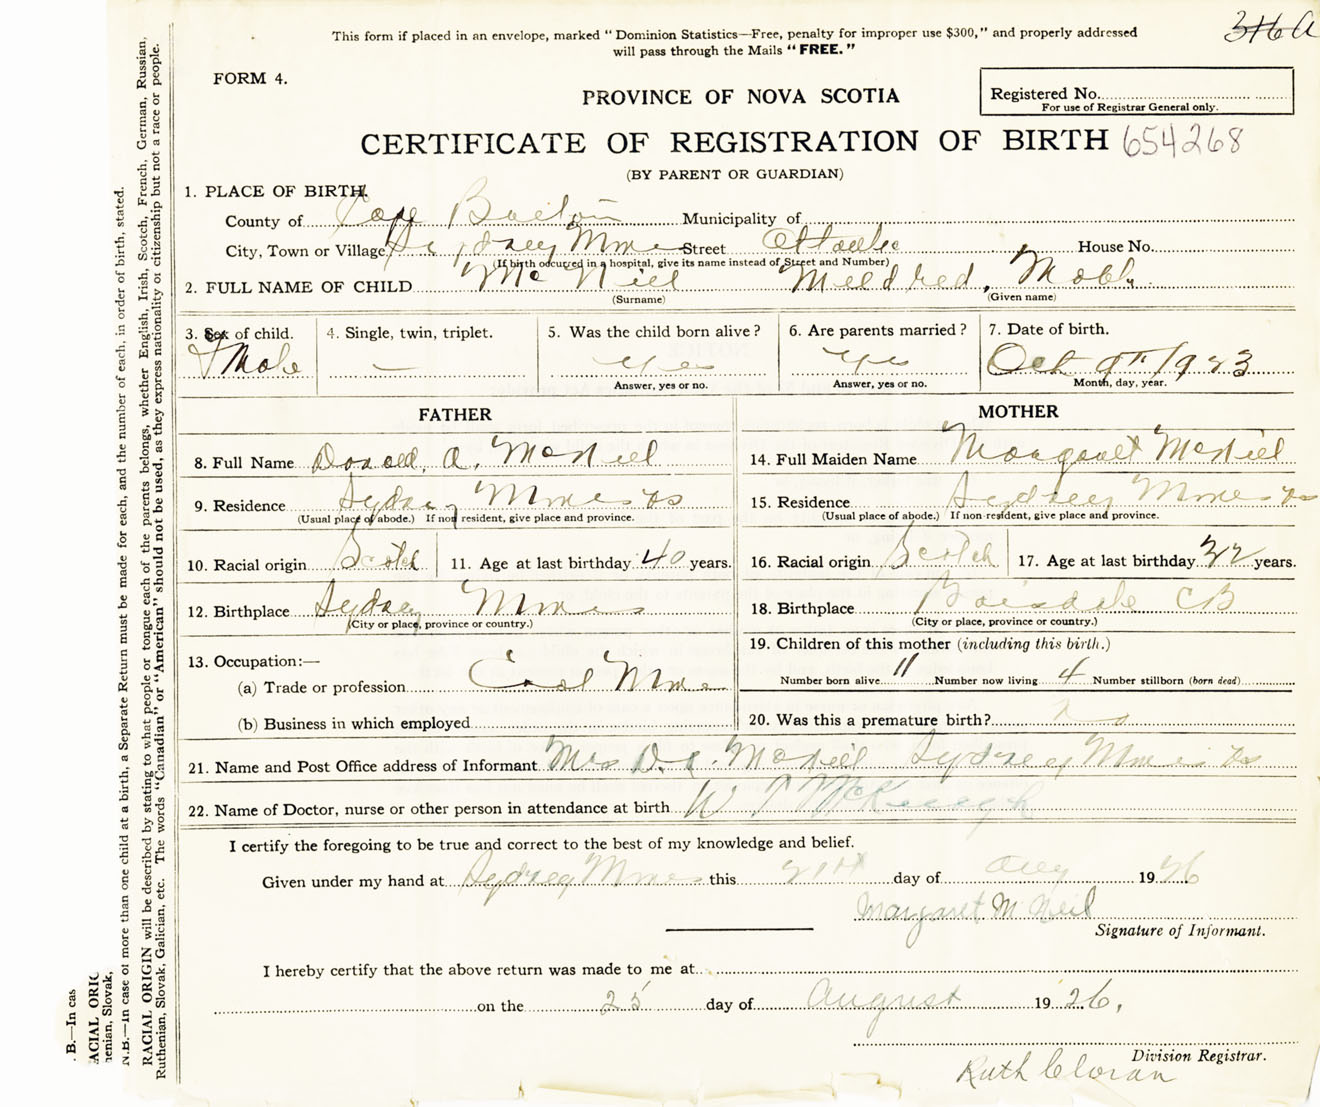 316 A
This form if placed in an envelope, marked "Dominion Statistics—Free, penalty for improper use $300," and properly addressed
will pass through the Mails "FREE."
FORM 4.
Registered No.
For use of Registrar General only.
PROVINCE OF NOVA SCOTIA
CERTIFICATE OF REGISTRATION OF BIRTH 654268
(BY PARENT OR GUARDIAN)
1. PLACE OF BIRTH.
County of Cape Breton Municipality of
City, Town or Village Sydney Mines Street House No.
(If birth occured in a hospital, give its name instead of Street and Number)
2. FULL NAME OF CHILD McNeil Mildred,
(Surname) (Given name)
3. Sex of child. 4. Single, twin, triplet. 5. Was the child born alive? 6. Are parents married? 7. Date of birth.
— Yes Yes Oct 9th 1923
Answer, yes or no. Answer, yes or no. Month, day, year.
FATHER MOTHER
8. Full Name Donald, A. McNeil 14. Full Maiden Name Margaret McNeil
9. Residence Sydney Mines NS 15. Residence Sydney Mines NS
(Usual place of abode.) If non resident, give place and province. (Usual place of abode.) If non-resident, give place and province.
10. Racial origin Scotch 11. Age at last birthday 40 years. 16. Racial origin Scotch 17. Age at last birthday years.
12. Birthplace Sydney Mines 18. Birthplace Boisdale CB
(City or place, province or country.) (City or place, province or country.)
13. Occupation:— 19. Children of this mother (including this birth.)
(a) Trade or profession Coal Mine Number born alive 11 Number now living 4 Number stillborn (born dead)
(b) Business in which employed 20. Was this a premature birth? no
21. Name and Post Office address of Informant Mrs D. A. McNeil Sydney Mines NS
22. Name of Doctor, nurse or other person in attendance at birth W T McKeough
I certify the foregoing to be true and correct to the best of my knowledge and belief.
Given under my hand at Sydney Mines this day of Aug 1926
Margaret McNeil
Signature of Informant.
I hereby certify that the above return was made to me at
on the 25 day of August 1926.
Division Registrar.
Ruth Cloran
N.B.—In case of more than one child at a birth, a Separate Return must be made for each, and the number of each, in order of birth, stated.
RACIAL ORIGIN will be described by stating to what people or tongue each of the parents belongs, whether English, Irish, Scotch, French, German, Russian,
Ruthenian, Slovak, Galician, etc. The words "Canadian" or "American" should not be used, as they express nationality or citizenship but not a race or people.
B.—In cas
ACIAL ORIG
nenian, Slovak,